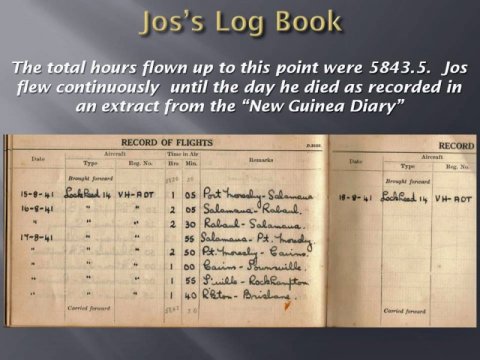 Jos's Log Book
The total hours flown up to this point were 5843.5. Jos
flew continuously until the day he died as recorded in
an extract from the “New Guinea Diary”
RECORD OF FLIGHTS
Date Aircraft Type Reg. No. Time in Air Hrs Min. Remarks
Brought forward
15-8-41 Lockheed 14 VH-ADT 1 05 Port Moresby - Salamaua
16-8-41 " " 2 05 Salamaua - Rabaul.
" " " 2 30 Rabaul - Salamaua.
17-8-41 " " 55 Salamaua - Pt. Moresby.
" " " 2 50 Pt. Moresby - Cairns.
" " " 1 00 Cairns - Townsville.
" " " 1 55 T'ville - Rockhampton
" " " 1 40 R'kton - Brisbane.
Carried forward
RECORD
Date Aircraft Type Reg. No.
Brought forward
18-8-41 Lockheed 14 VH-ADT
Carried forward